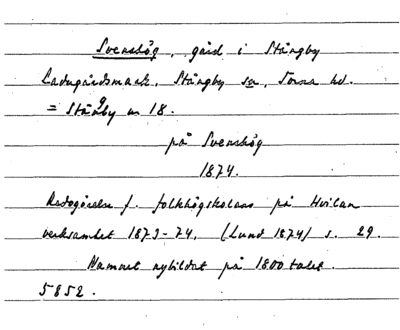 Svenshög, gård i Stångby
Ladugårdsmark, Stångby sn, Torna hd.
= Stångby nr 18.
på Svenshög
1874.
Redogörelse f. folkhögskolans på Hvilan
verksamhet 1873-74, (Lund 1874) s. 29.
Namnet nybildat på 1800talet.
5852.